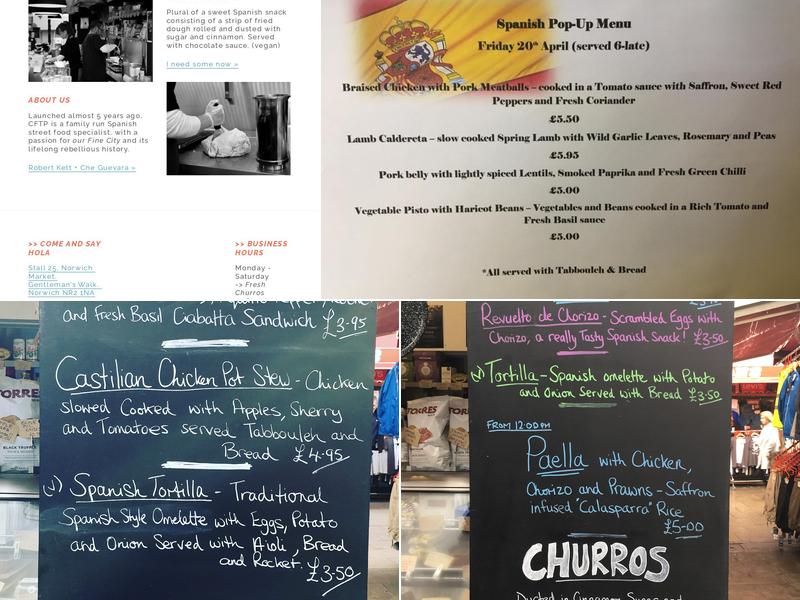 Plural of a sweet Spanish snack
consisting of a strip of fried
dough rolled and dusted with
sugar and cinnamon. Served
with chocolate sauce. (vegan)
I need some now »
ABOUT US
Launched almost 5 years ago,
CFTP is a family run Spanish
street food specialist, with a
passion for our Fine City and its
lifelong rebellious history.
Robert Kett • Che Guevara »
>> COME AND SAY
HOLA
Stall 25, Norwich
Market,
Gentleman's Walk,
Norwich NR2 1NA
>> BUSINESS
HOURS
Monday -
Saturday
-> Fresh
Churros
Spanish Pop-Up Menu
Friday 20th April (served 6-late)
Braised Chicken with Pork Meatballs – cooked in a Tomato sauce with Saffron, Sweet Red
Peppers and Fresh Coriander
£5.50
Lamb Caldereta – slow cooked Spring Lamb with Wild Garlic Leaves, Rosemary and Peas
£5.95
Pork belly with lightly spiced Lentils, Smoked Paprika and Fresh Green Chilli
£5.00
Vegetable Pisto with Haricot Beans – Vegetables and Beans cooked in a Rich Tomato and
Fresh Basil sauce
£5.00
*All served with Tabbouleh & Bread
and Fresh Basil Ciabatta Sandwich £3.95
Castilian Chicken Pot Stew - Chicken
slowed Cooked with Apples, Sherry
and Tomatoes served Tabbouleh and
Bread £4.95
(v) Spanish Tortilla - Traditional
Spanish Style Omelette with Eggs, Potato
and Onion Served with Aioli, Bread
and Rocket. £3.50
TORRES
BLACK TRUFFLE
Revuelto de Chorizo - Scrambled Eggs with
Chorizo, a really Tasty Spanish Snack! £3.50
(v) Tortilla - Spanish omelette with Potato
and Onion Served with Bread £3.50
FROM 12:00PM
Paella with Chicken,
Chorizo and Prawns - Saffron
infused "Calasparra" Rice
£5-00
CHURROS
Dusted in Cinnamon Sugar and
TORRES